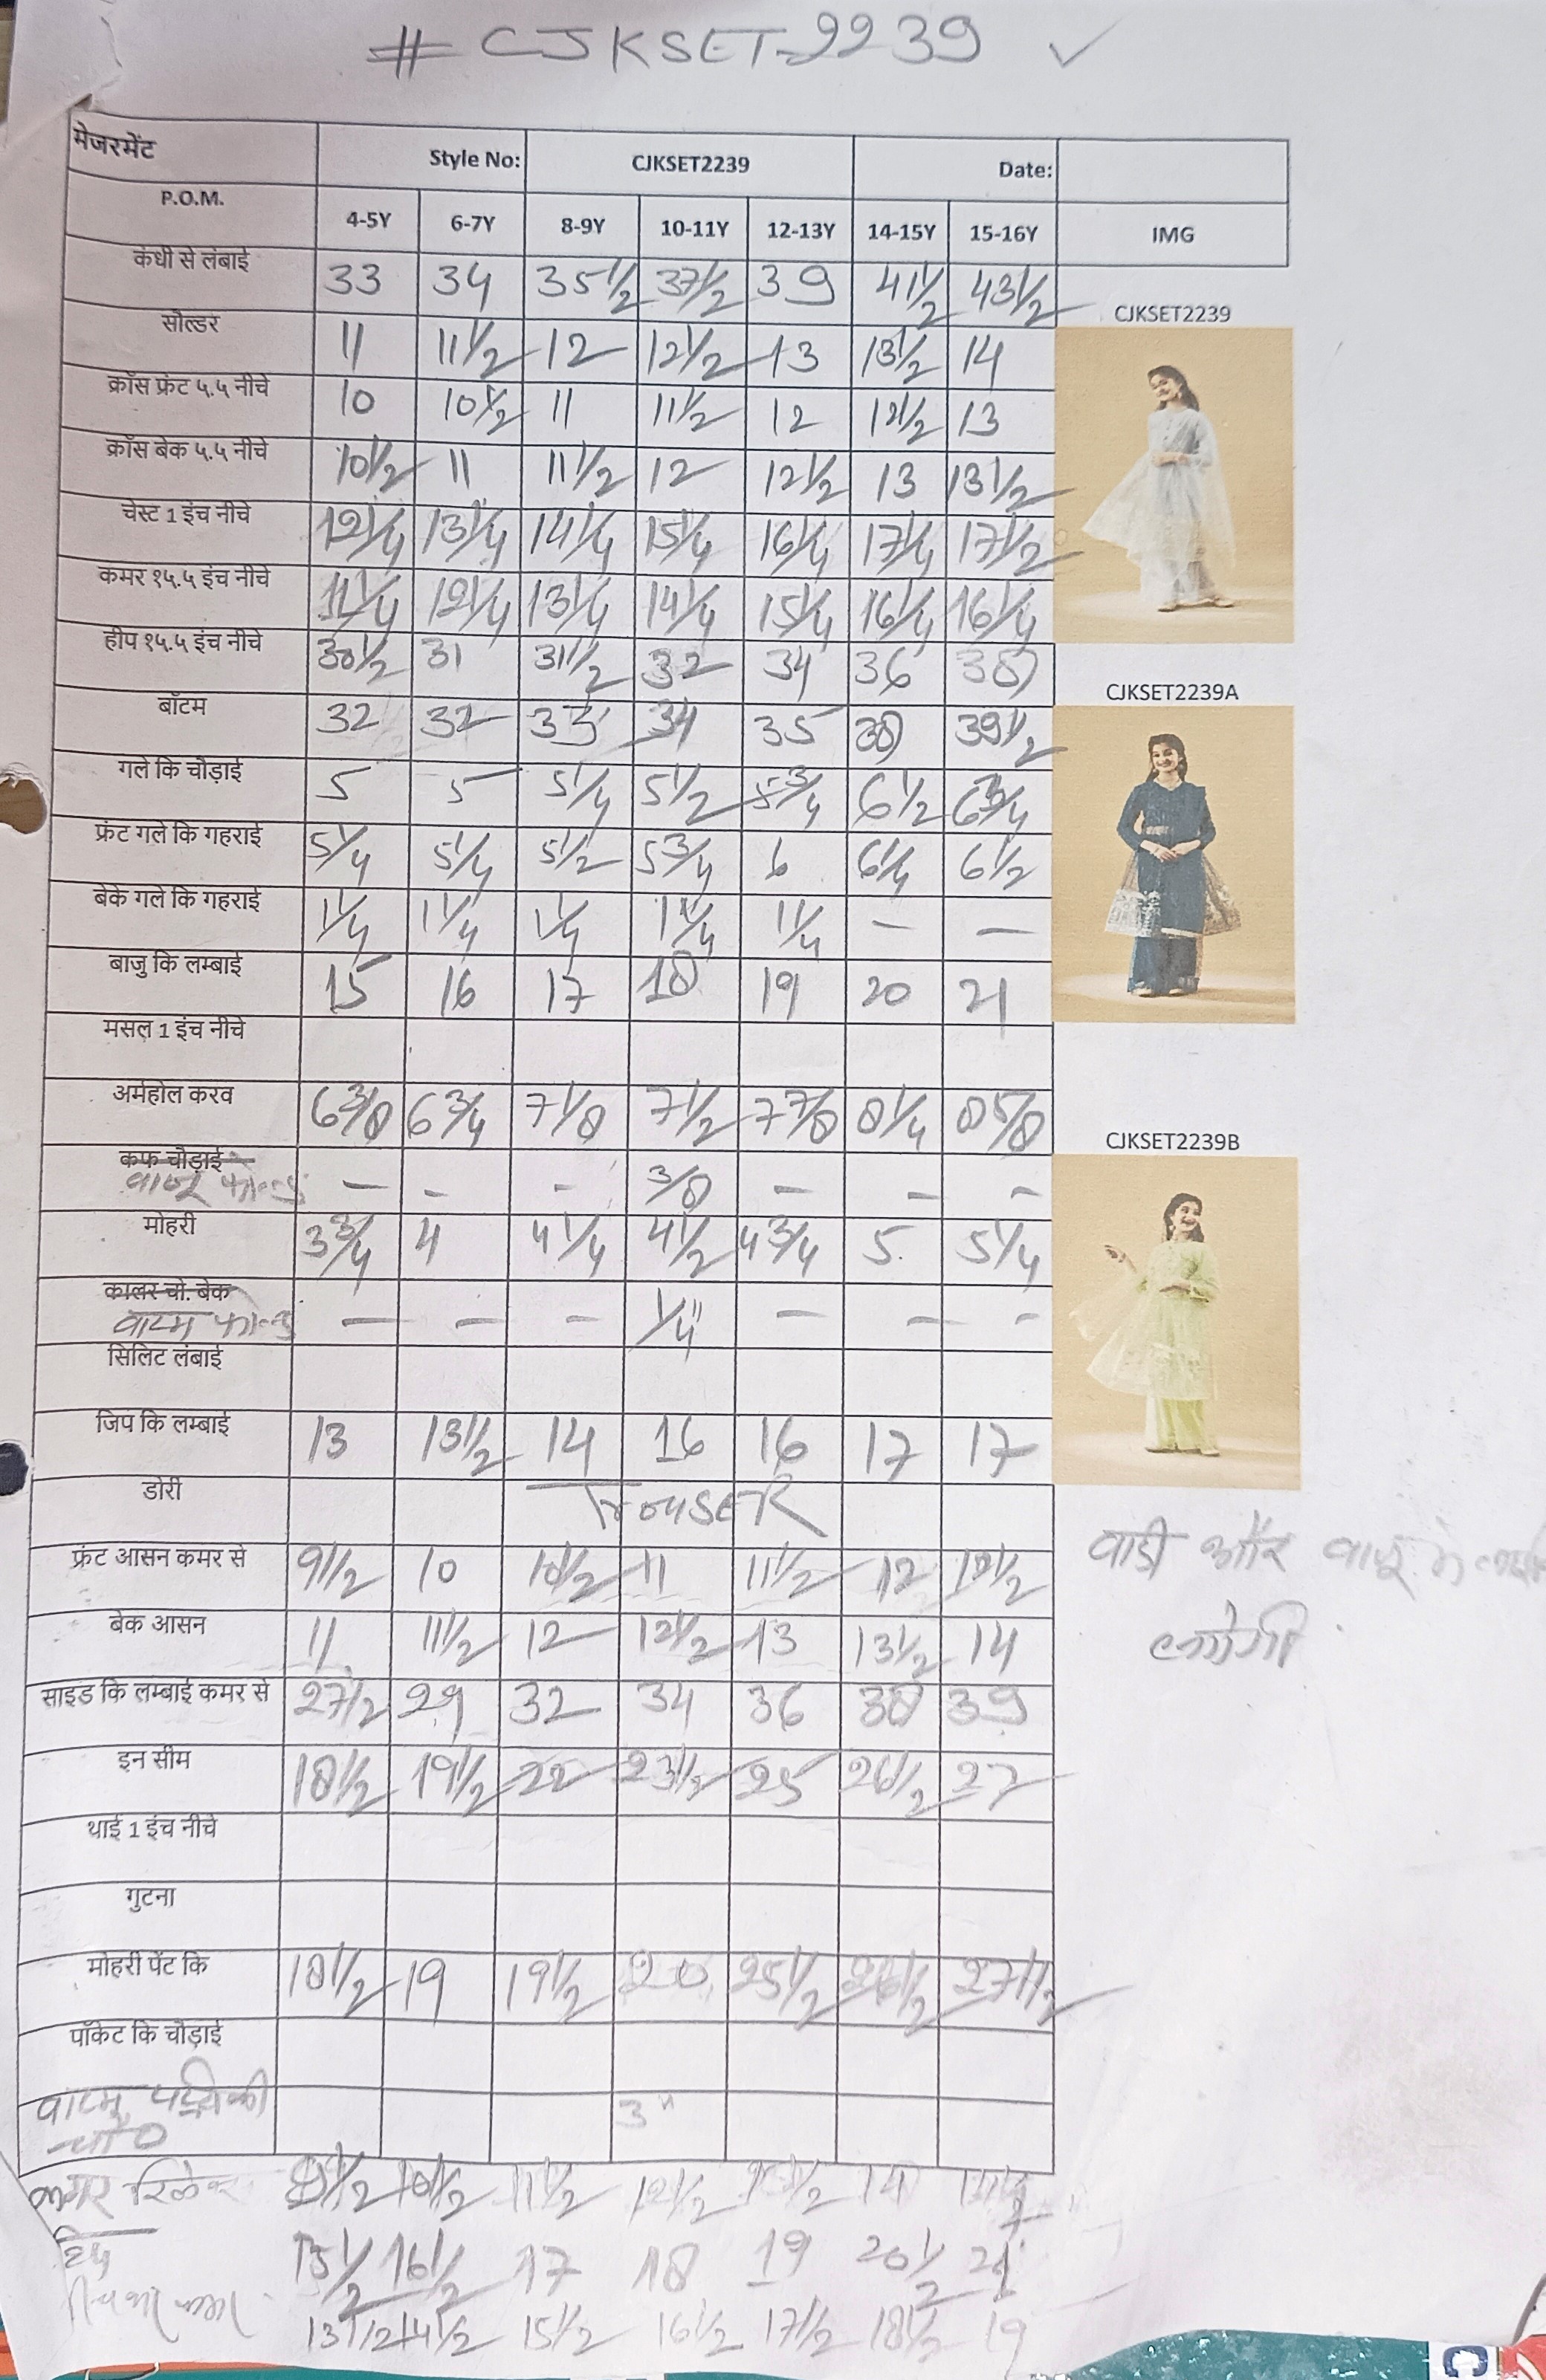 # CJKSET-2239 ✓
मेजरमेंट Style No: CJKSET2239 Date:
P.O.M. 4-5Y 6-7Y 8-9Y 10-11Y 12-13Y 14-15Y 15-16Y IMG
कंधी से लंबाई 33 34 35 1/2 37 1/2 39 41 1/2 43 1/2
CJKSET2239
सोल्डर 11 11 1/2 12 12 1/2 13 13 1/2 14
क्रॉस फ्रंट ५.५ नीचे 10 10 1/2 11 11 1/2 12 12 1/2 13
क्रॉस बेक ५.५ नीचे 10 1/2 11 11 1/2 12 12 1/2 13 13 1/2
चेस्ट 1 इंच नीचे 12 1/4 13 1/4 14 1/4 15 1/4 16 1/4 17 1/4 17 1/2
कमर १५.५ इंच नीचे 11 1/4 12 1/4 13 1/4 14 1/4 15 1/4 16 1/4 16 1/4
हीप १५.५ इंच नीचे 30 1/2 31 31 1/2 32 34 36 38
CJKSET2239A
बॉटम 32 32 33 34 35 38 39 1/2
गले कि चौड़ाई 5 5 5 1/4 5 1/2 5 3/4 6 1/2 6 3/4
फ्रंट गले कि गहराई 5 1/4 5 1/4 5 1/2 5 3/4 6 6 1/4 6 1/2
बेके गले कि गहराई 1 1/4 1 1/4 1 1/4 1 1/4 1 1/4 — —
बाजु कि लम्बाई 15 16 17 18 19 20 21
मसल 1 इंच नीचे
अर्महोल करव 6 3/8 6 3/4 7 1/8 7 1/2 7 7/8 8 1/4 8 5/8
CJKSET2239B
कफ चौड़ाई
बाजू फोल्ड — - - 3/8 — - -
मोहरी 3 3/4 4 4 1/4 4 1/2 4 3/4 5 5 1/4
कालर चो. बेक
बाटम फोल्ड — — - 1/4" — — -
सिलिट लंबाई
जिप कि लम्बाई 13 13 1/2 14 16 16 17 17
डोरी TrouSER
फ्रंट आसन कमर से 9 1/2 10 10 1/2 11 11 1/2 12 12 1/2
बाडी और बाजू मे
लगेगी
बेक आसन 11 11 1/2 12 12 1/2 13 13 1/2 14
साइड कि लम्बाई कमर से 27 1/2 29 32 34 36 38 39
इन सीम 18 1/2 19 1/2 22 23 1/2 25 26 1/2 27
थाई 1 इंच नीचे
गुटना
मोहरी पेंट कि 18 1/2 19 19 1/2 20 25 1/2 26 1/2 27 1/2
पॉकेट कि चौड़ाई
बाटम पट्टी की 3"
चौ0
कमर रिलेक्स 10 1/2 11 1/2 12 1/2 14
हिप 15 1/2 16 1/2 17 18 19 20 1/2 21
13 1/2 14 1/2 15 1/2 16 1/2 17 1/2 18 1/2 19